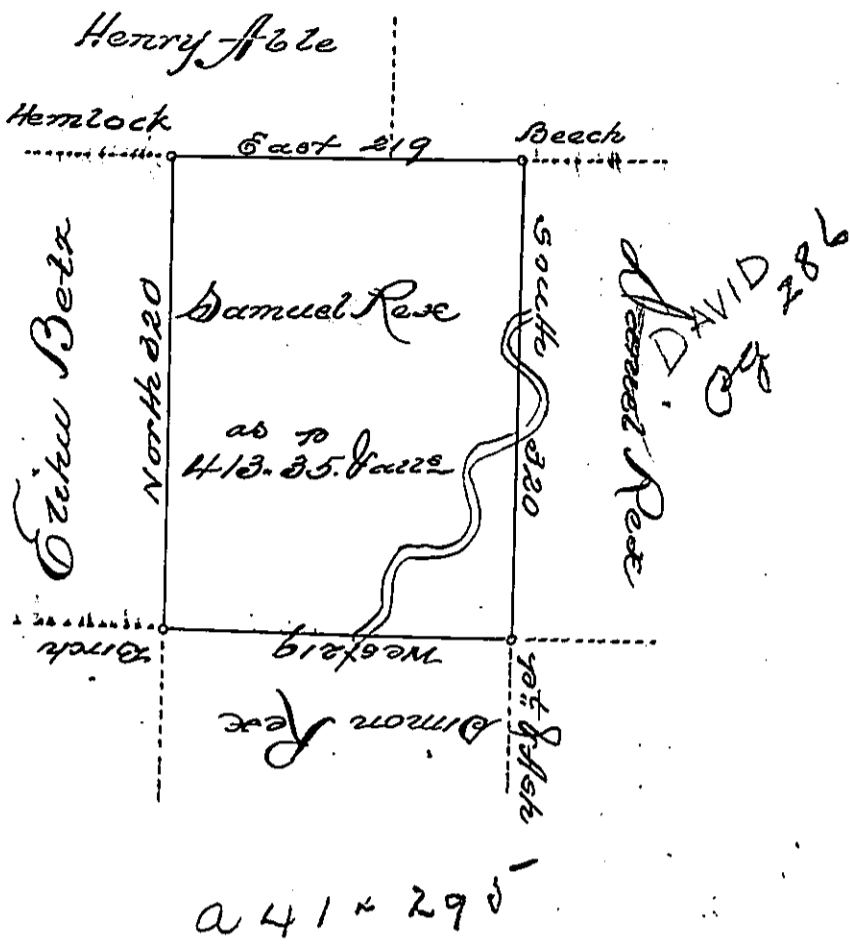 Henry Able
Hemlock
East 219
Beech
Elihu Betz
North 320
Samuel Rex
as p
413.35. Falls
South 320
Daniel Rex
DAVID
Pg 286
Birch
West 219
Simon Rex
pt & Ash
a 41 x 295